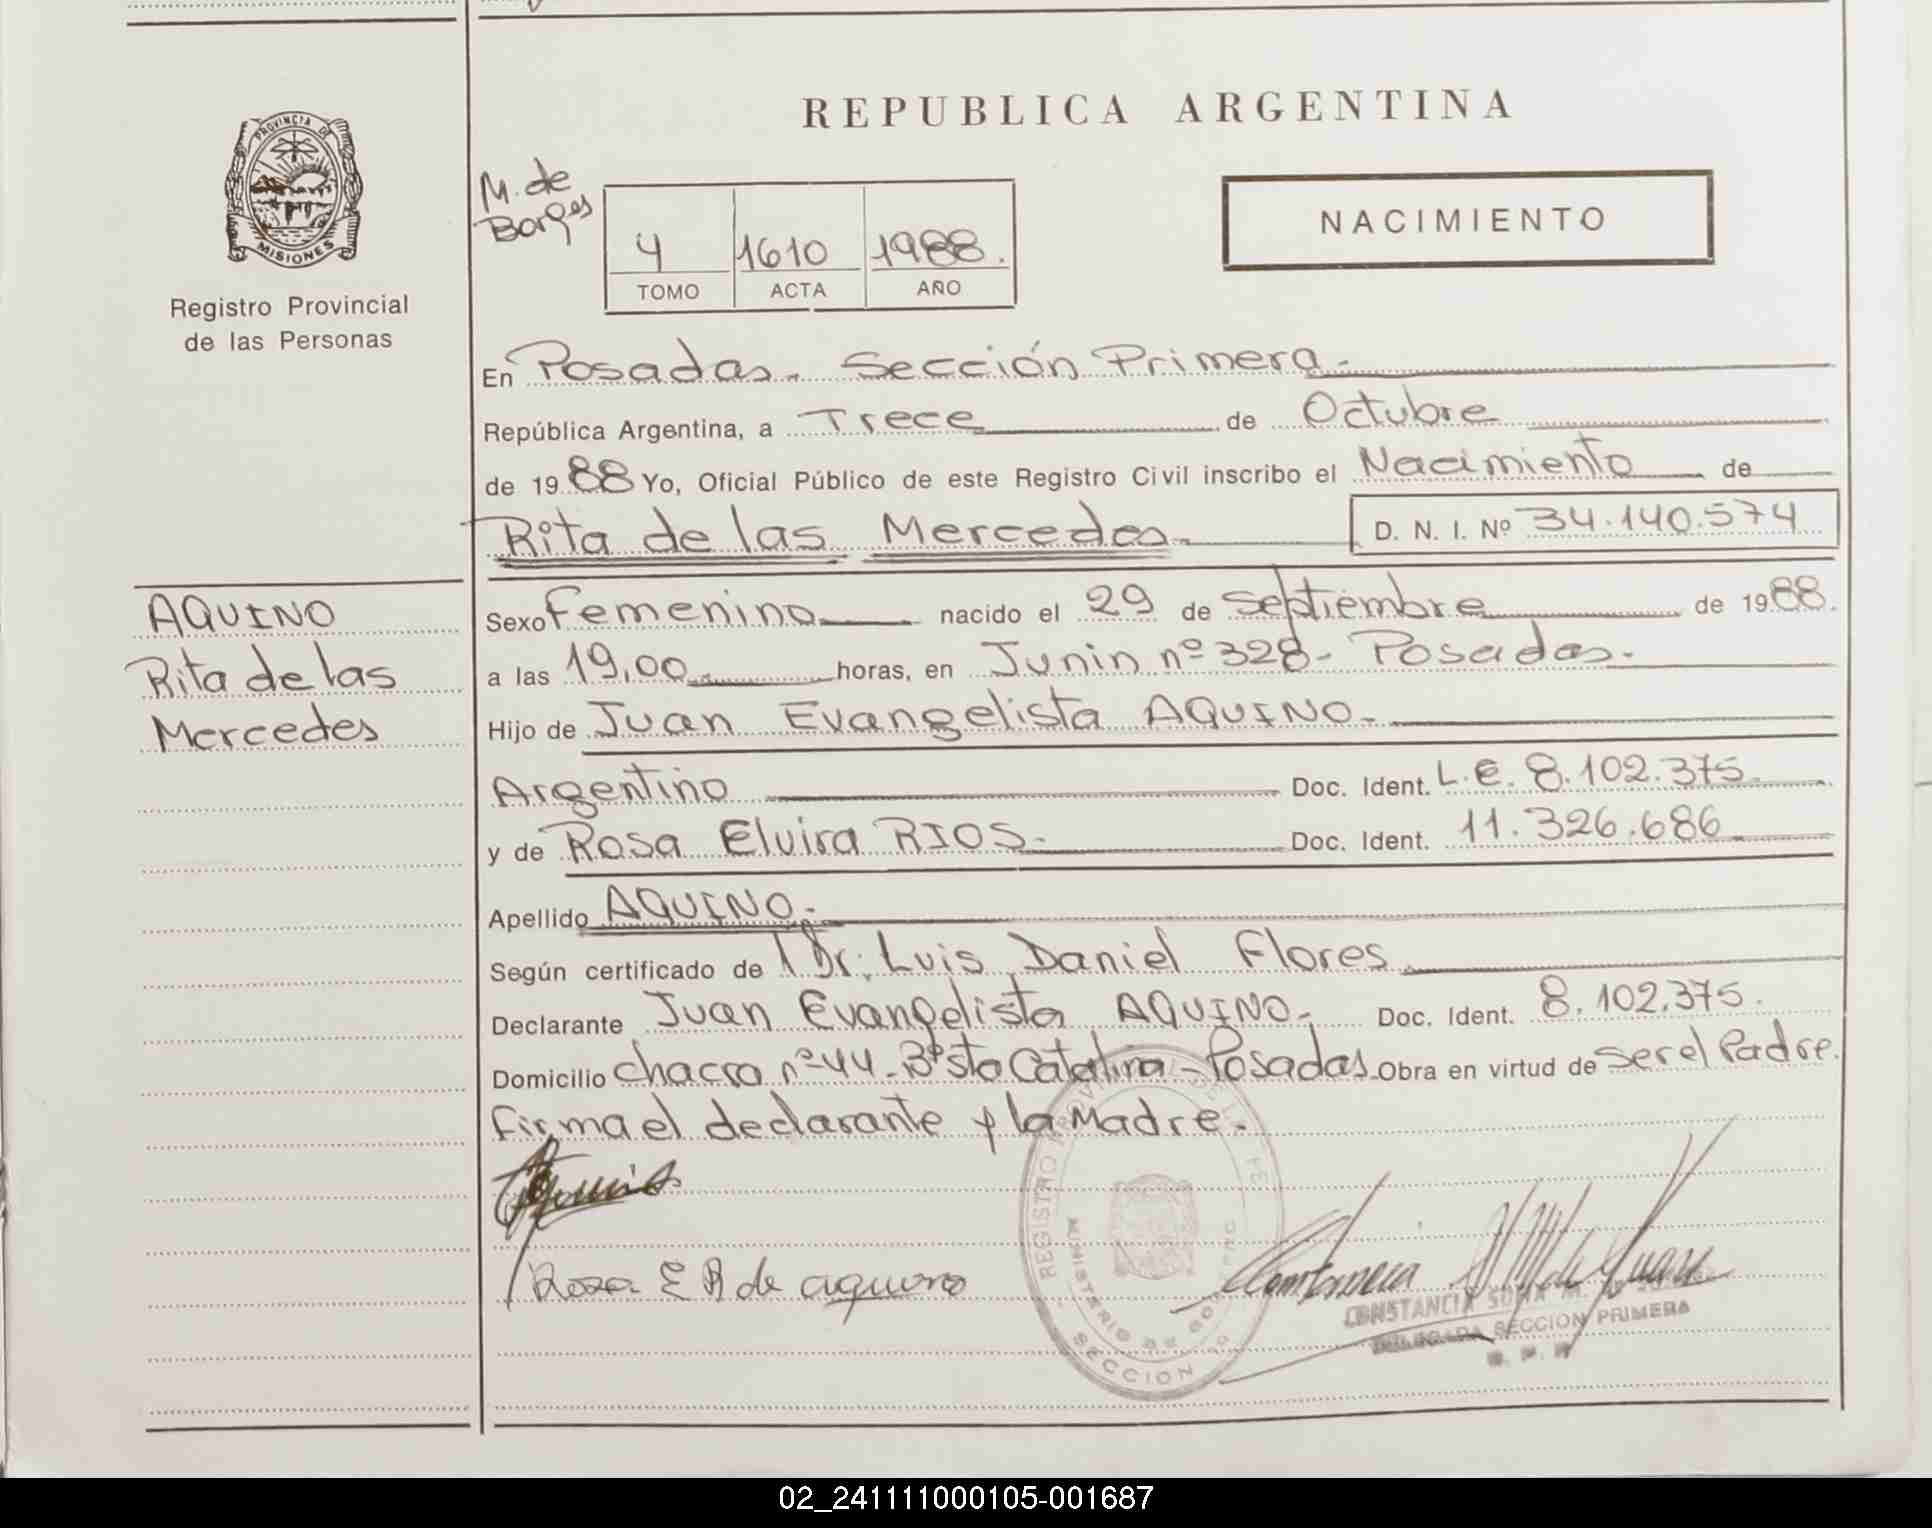 REPUBLICA ARGENTINA
PROVINCIA DE
MISIONES
Registro Provincial
de las Personas
M. de
Borges
4 1610 1988.
TOMO ACTA AÑO
NACIMIENTO
En Posadas. Sección Primera.
República Argentina, a Trece de Octubre
de 1988 Yo, Oficial Público de este Registro Civil inscribo el Nacimiento de
Rita de las Mercedes. D. N. I. Nº 34.140.574
AQUINO
Rita de las
Mercedes
Sexo Femenino nacido el 29 de Septiembre de 1988.
a las 19,00 horas, en Junin nº 328- Posadas.
Hijo de Juan Evangelista AQUINO.
Argentino Doc. Ident. L.E. 8.102.375.
y de Rosa Elvira RIOS. Doc. Ident. 11.326.686
Apellido AQUINO.
Según certificado de Dr. Luis Daniel Flores
Declarante Juan Evangelista AQUINO. Doc. Ident. 8.102.375.
Domicilio chacra nº 44 - Bº Sta Catalina - Posadas Obra en virtud de ser el Padre.
Firma el declarante y la Madre.
Rosa E R de aquino
REGISTRO
MINISTERIO DE GOBIERNO
SECCION 1º
CONSTANCIA
SECCION PRIMERA
02_241111000105-001687